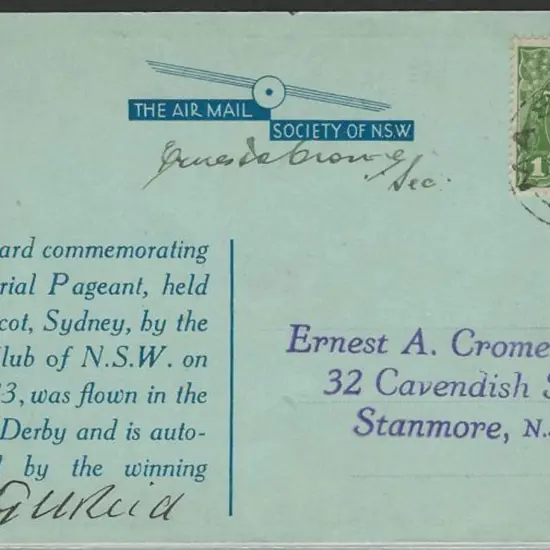 THE AIR MAIL
SOCIETY OF N.S.W.
Ernest A. Crome
Sec.
1
ard commemorating
rial Pageant, held
cot, Sydney, by the
lub of N.S.W. on
3, was flown in the
Derby and is auto-
by the winning
G U Reid
Ernest A. Crome
32 Cavendish S
Stanmore, N.